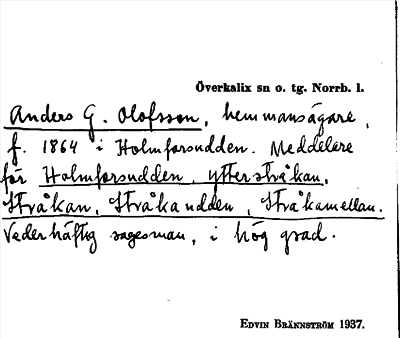 Överkalix sn o. tg. Norrb. l.
Anders G. Olofsson, hemmansägare,
f. 1864 i Holmforsudden. Meddelare
för Holmforsudden, Ytterstråkan,
Stråkan, Stråkaudden, Stråkamellan.
Vederhäftig sagesman, i hög grad.
Edvin Brännström 1937.